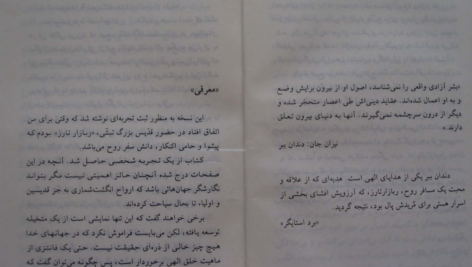 «معرفی»
این نسخه به منظور ثبت تجربه‌ای نوشته شد که وقتی برای من
اتفاق افتاد در حضور قدیس بزرگ تبتی، «ربازار تارز» بودم که
پیشوا و حامی اکنکار، دانش سفر روح می‌باشد.
کتاب از یک تجربه شخصی حاصل شد. آنچه در این
صفحات درج شده آنچنان حائز اهمیتی نیست مگر بتواند
نگارشگر جهان‌هائی باشد که ارواح انگشت‌شماری به جز قدیسین
و اولیاء، تا بحال سیاحت کرده‌اند.
برخی خواهند گفت که این تنها نمایشی است از یک متخیله
توسعه یافته، لکن می‌بایست فراموش نکرد که در جهانهای خدا
هیچ چیز خالی از ذره‌ای حقیقت نیست. حتی یک فانتزی از
ماهیت خلق الهی برخوردار است، پس چگونه می‌توان گفت که
«بشر آزادی واقعی را نمی‌شناسد، اصول او از بیرون برایش وضع
و به او اعمال شده‌اند. عقاید دینی‌اش طی اعصار متحجر شده و
دیگر از درون سرچشمه نمی‌گیرند. آنها به دنیای بیرون تعلق
دارند.»
نیزان جان: دندان ببر
دندان ببر یکی از هدایای الهی است. هدیه‌ای که از علاقه و
محبت یک مسافر روح، ربازارتارز، که آرزویش افشای بخشی از
اسرار هستی برای مریدش پال بود، نتیجه گردید.
«برد استایگر»